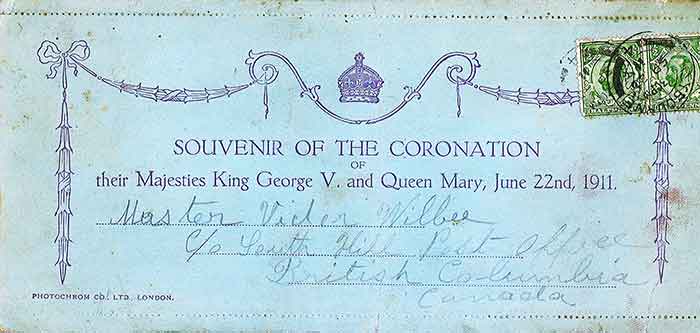 SOUVENIR OF THE CORONATION
OF
their Majesties King George V. and Queen Mary, June 22nd, 1911.
Master Victor Wilbee
c/o South Hill Post Office
British Columbia
Canada
PHOTOCHROM CO., LTD. LONDON.